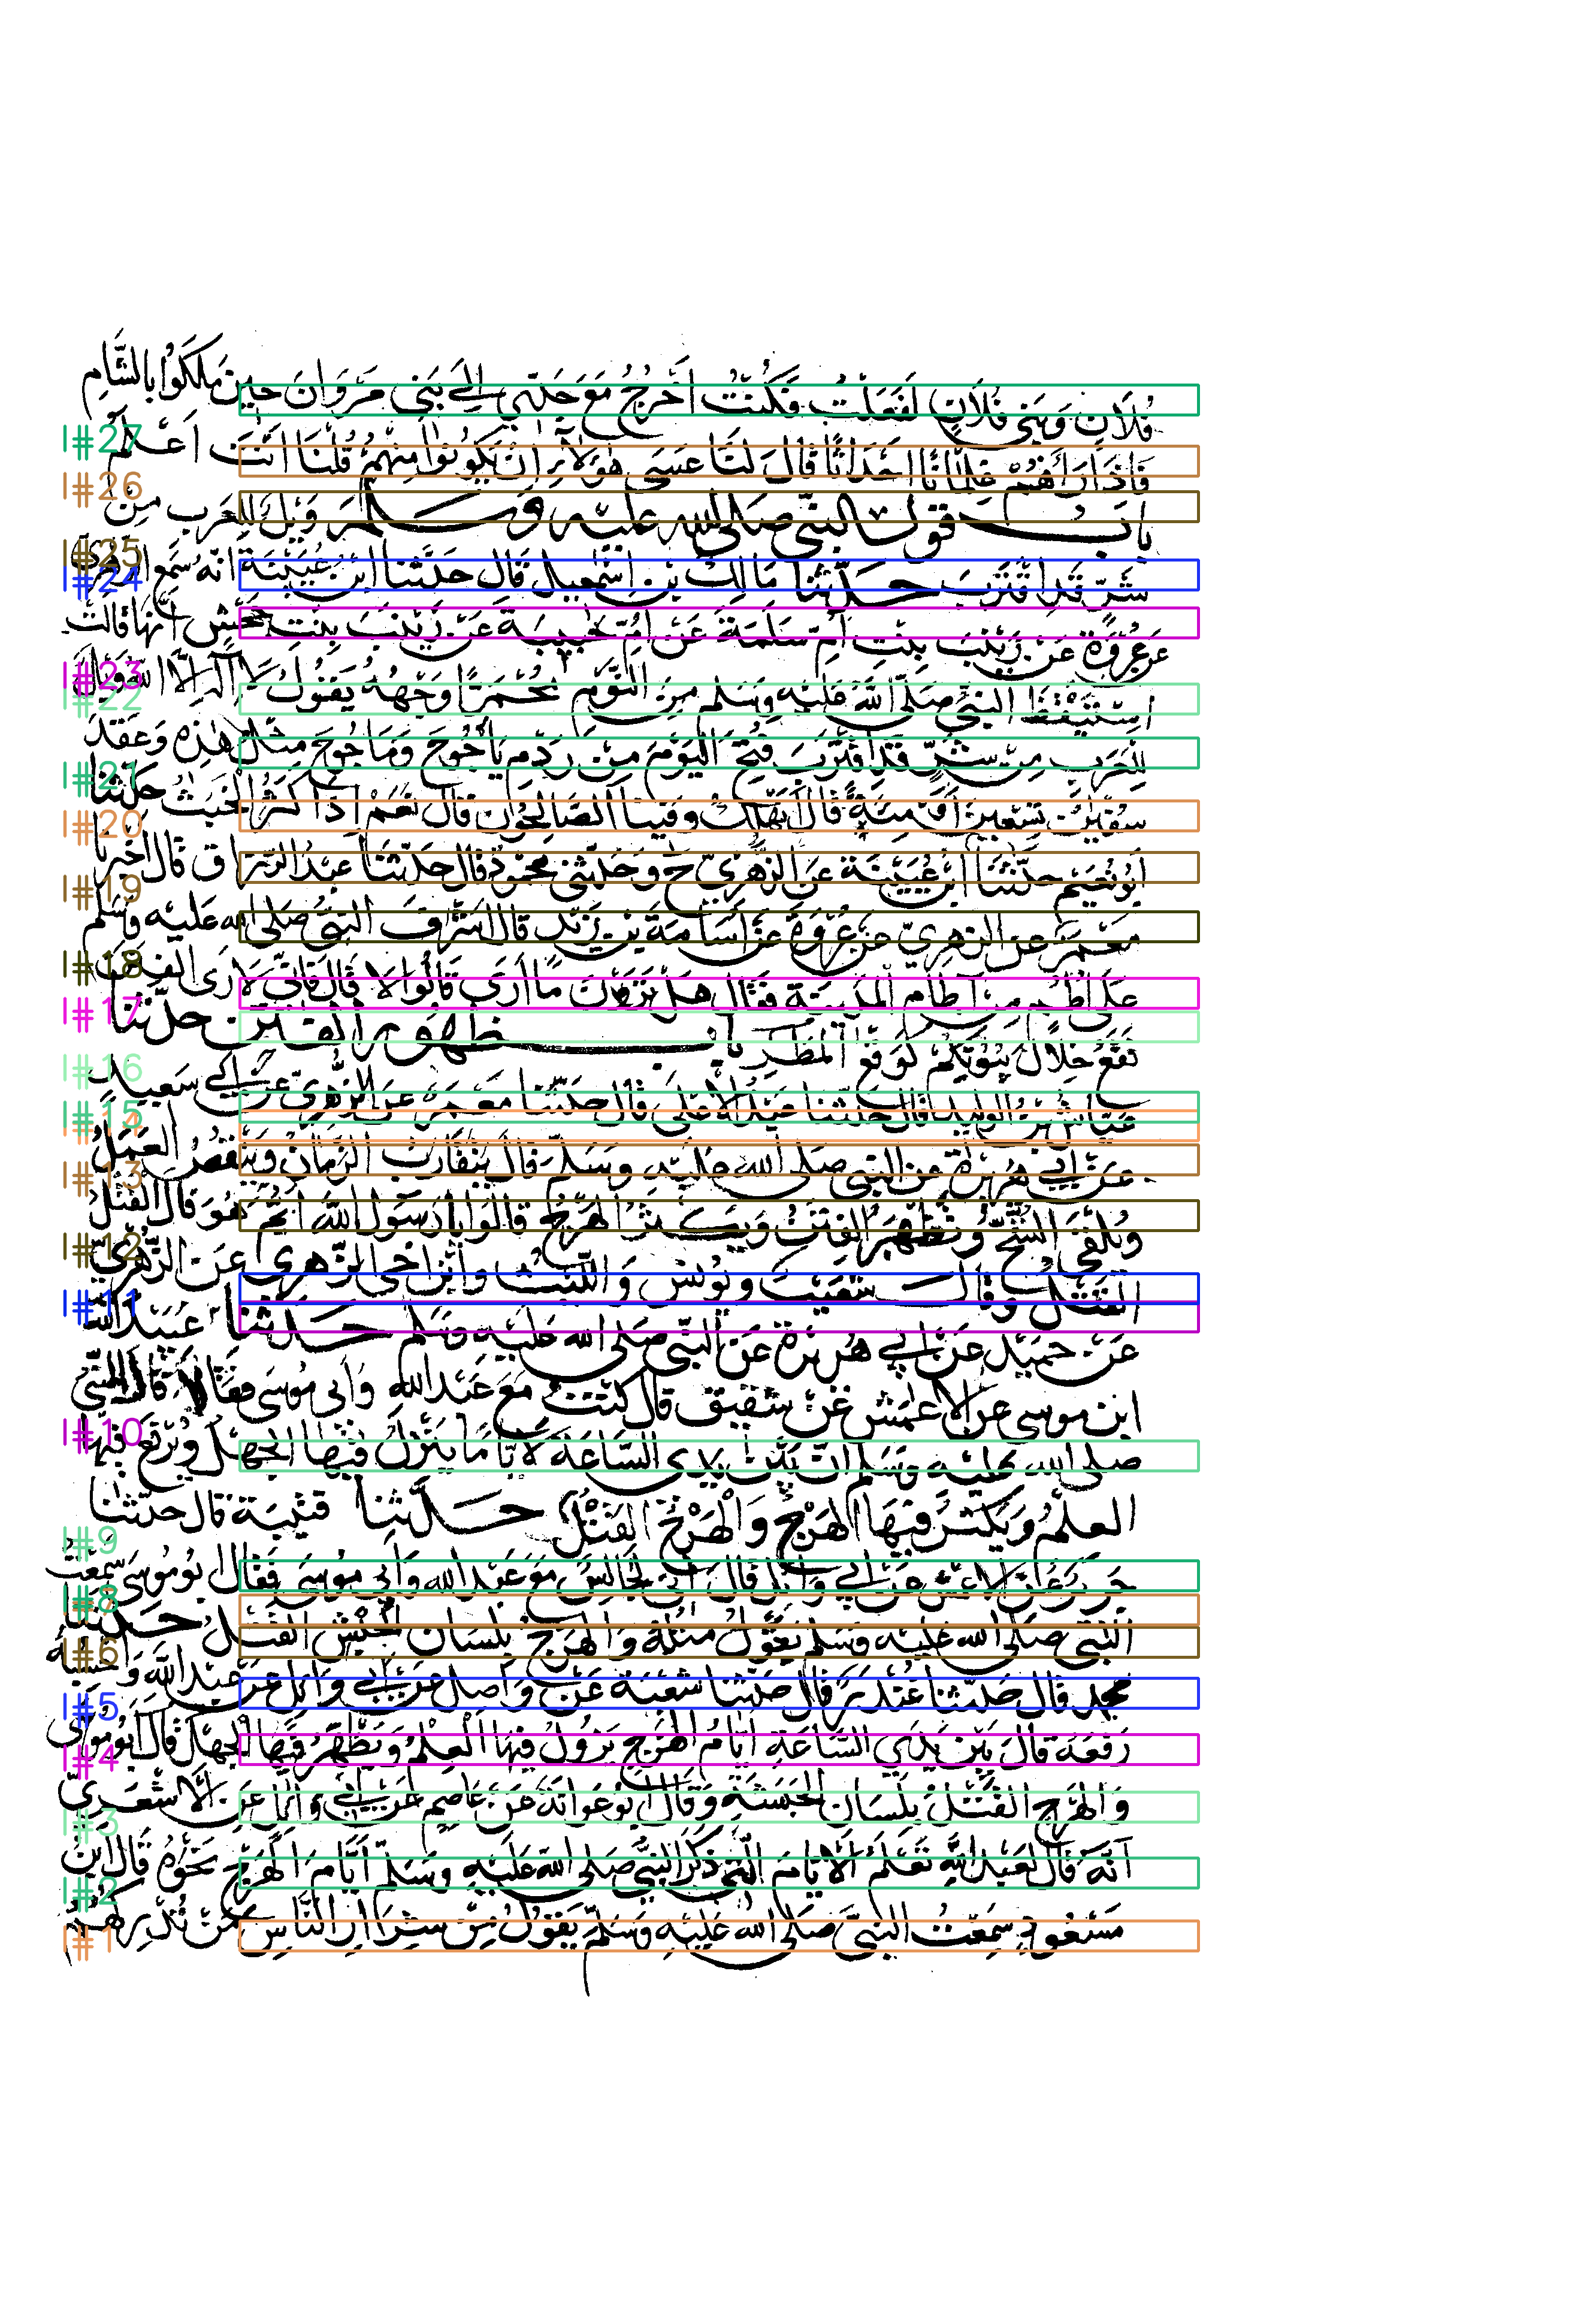 فُلَانٍ وَبَنِي فُلَانٍ لَفَعَلْتُ فَكُنْتُ أَخْرُجُ مَعَ جَدِّي إِلَى بَنِي مَرْوَانَ حِينَ مَلَكُوا بِالشَّامِ
فَإِذَا رَآهُمْ غِلْمَانًا أَحْدَاثًا قَالَ لَنَا عَسَى هَؤُلَاءِ أَنْ يَكُونُوا مِنْهُمْ قُلْنَا أَنْتَ أَعْلَمُ
باب قول النبي صلى الله عليه وسلم وَيْلٌ لِلْعَرَبِ مِنْ
شَرٍّ قَدِ اقْتَرَبَ حدثنا مالك بن إسمعيل قال حدثنا ابن عيينة انه سمع الزهري
عن عروة عن زينب بنت أم سلمة عن أم حبيبة عن زينب بنت جحش أنها قالت
استيقظ النبي صلى الله عليه وسلم من النوم محمرا وجهه يقول لا اله الا الله ويل
للعرب من شر قد اقترب فتح اليوم من ردم ياجوج وماجوج مثل هذه وعقد
سفين تسعين أو مئة قال أنهلك وفينا الصالحون قال نعم إذا كثر الخبث حدثنا
ابو نعيم حدثنا ابن عيينة عن الزهري ح وحدثني محمود قال حدثنا عبد الرزاق قال اخبرنا
معمر عن الزهري عن عروة عن أسامة بن زيد قال اشرف النبي صلى الله عليه وسلم
على أطم من آطام المدينة فقال هل ترون ما أرى قالوا لا قال فاني لارى الفتن
تقع خلال بيوتكم كوقع المطر باب ظهور الفتن حدثنا
عياش بن الوليد قال حدثنا عبد الاعلى قال حدثنا معمر عن الزهري عن سعيد
عن أبي هريرة عن النبي صلى الله عليه وسلم قال يتقارب الزمان وينقص العمل
ويلقى الشح وتظهر الفتن ويكثر الهرج قالوا يا رسول الله ايم هو قال القتل
القتل وقال شعيب ويونس والليث وابن اخي الزهري عن الزهري
عن حميد عن أبي هريرة عن النبي صلى الله عليه وسلم حدثنا عبيد الله
ابن موسى عن الاعمش عن شقيق قال كنت مع عبد الله وابي موسى فقالا قال النبي
صلى الله عليه وسلم ان بين يدي الساعة لاياما ينزل فيها الجهل ويرفع فيها
العلم ويكثر فيها الهرج والهرج القتل حدثنا قتيبة قال حدثنا
جرير عن الاعمش عن أبي وائل قال اني لجالس مع عبد الله وأبي موسى فقال ابو موسى سمعت
النبي صلى الله عليه وسلم يقول مثله والهرج بلسان الحبش القتل حدثنا
محمد قال حدثنا غندر قال حدثنا شعبة عن واصل عن أبي وائل عن عبد الله واحسبه
رفعه قال بين يدي الساعة أيام الهرج يزول فيها العلم ويظهر فيها الجهل قال أبو موسى
والهرج القتل بلسان الحبشة وقال أبو عوانة عن عاصم عن أبي وائل عن الأشعري
أنه قال لعبد الله تعلم الأيام التي ذكر النبي صلى الله عليه وسلم أيام الهرج نحوه قال ابن
مسعود سمعت النبي صلى الله عليه وسلم يقول من شرار الناس من تدركهم
l#27
l#26
l#25
l#24
l#23
l#22
l#21
l#20
l#19
l#18
l#17
l#16
l#15
l#13
l#12
l#11
l#10
l#9
l#8
l#6
l#5
l#4
l#3
l#2
l#1